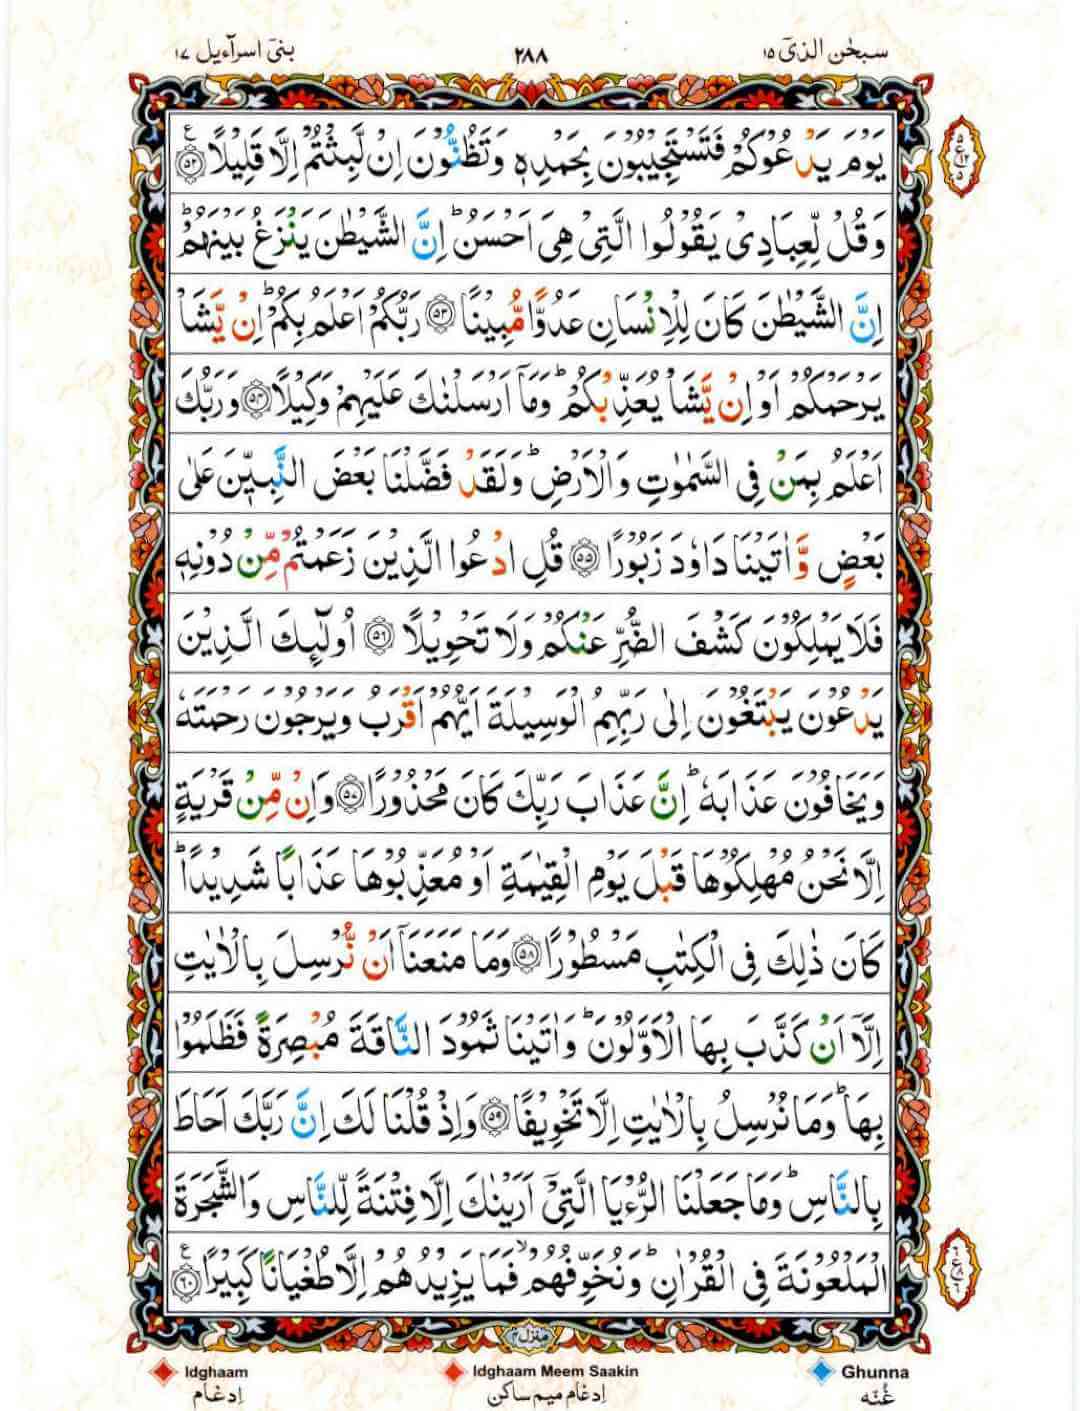 سبحٰن الذیٓ ١٥
٢٨٨
بنیٓ اسرآءیل ١٧
يَوْمَ يَدْعُوْكُمْ فَتَسْتَجِيْبُوْنَ بِحَمْدِهٖ وَتَظُنُّوْنَ اِنْ لَّبِثْتُمْ اِلَّا قَلِيْلًا ۝٥٢ ع
وَقُلْ لِّعِبَادِىْ يَقُوْلُوا الَّتِىْ هِىَ اَحْسَنُ ؕ اِنَّ الشَّيْطٰنَ يَنْزَغُ بَيْنَهُمْ ؕ
اِنَّ الشَّيْطٰنَ كَانَ لِلْاِنْسَانِ عَدُوًّا مُّبِيْنًا ۝٥٣ رَبُّكُمْ اَعْلَمُ بِكُمْ ؕ اِنْ يَّشَاْ
يَرْحَمْكُمْ اَوْ اِنْ يَّشَاْ يُعَذِّبْكُمْ ؕ وَمَاۤ اَرْسَلْنٰكَ عَلَيْهِمْ وَكِيْلًا ۝٥٤ وَرَبُّكَ
اَعْلَمُ بِمَنْ فِى السَّمٰوٰتِ وَالْاَرْضِ ؕ وَلَقَدْ فَضَّلْنَا بَعْضَ النَّبِيّٖنَ عَلٰى
بَعْضٍ وَّاٰتَيْنَا دَاوٗدَ زَبُوْرًا ۝٥٥ قُلِ ادْعُوا الَّذِيْنَ زَعَمْتُمْ مِّنْ دُوْنِهٖ
فَلَا يَمْلِكُوْنَ كَشْفَ الضُّرِّ عَنْكُمْ وَلَا تَحْوِيْلًا ۝٥٦ اُولٰٓئِكَ الَّذِيْنَ
يَدْعُوْنَ يَبْتَغُوْنَ اِلٰى رَبِّهِمُ الْوَسِيْلَةَ اَيُّهُمْ اَقْرَبُ وَيَرْجُوْنَ رَحْمَتَهٗ
وَيَخَافُوْنَ عَذَابَهٗ ؕ اِنَّ عَذَابَ رَبِّكَ كَانَ مَحْذُوْرًا ۝٥٧ وَاِنْ مِّنْ قَرْيَةٍ
اِلَّا نَحْنُ مُهْلِكُوْهَا قَبْلَ يَوْمِ الْقِيٰمَةِ اَوْ مُعَذِّبُوْهَا عَذَابًا شَدِيْدًا ؕ
كَانَ ذٰلِكَ فِى الْكِتٰبِ مَسْطُوْرًا ۝٥٨ وَمَا مَنَعَنَاۤ اَنْ نُّرْسِلَ بِالْاٰيٰتِ
اِلَّاۤ اَنْ كَذَّبَ بِهَا الْاَوَّلُوْنَ ؕ وَاٰتَيْنَا ثَمُوْدَ النَّاقَةَ مُبْصِرَةً فَظَلَمُوْا
بِهَا ؕ وَمَا نُرْسِلُ بِالْاٰيٰتِ اِلَّا تَخْوِيْفًا ۝٥٩ وَاِذْ قُلْنَا لَكَ اِنَّ رَبَّكَ اَحَاطَ
بِالنَّاسِ ؕ وَمَا جَعَلْنَا الرُّءْيَا الَّتِىْۤ اَرَيْنٰكَ اِلَّا فِتْنَةً لِّلنَّاسِ وَالشَّجَرَةَ
الْمَلْعُوْنَةَ فِى الْقُرْاٰنِ ؕ وَنُخَوِّفُهُمْ ۙ فَمَا يَزِيْدُهُمْ اِلَّا طُغْيَانًا كَبِيْرًا ۝٦٠ ع
منزل ٤
Idghaam Idghaam Meem Saakin Ghunna
اِدغام اِدغام میم ساکن غُنّہ